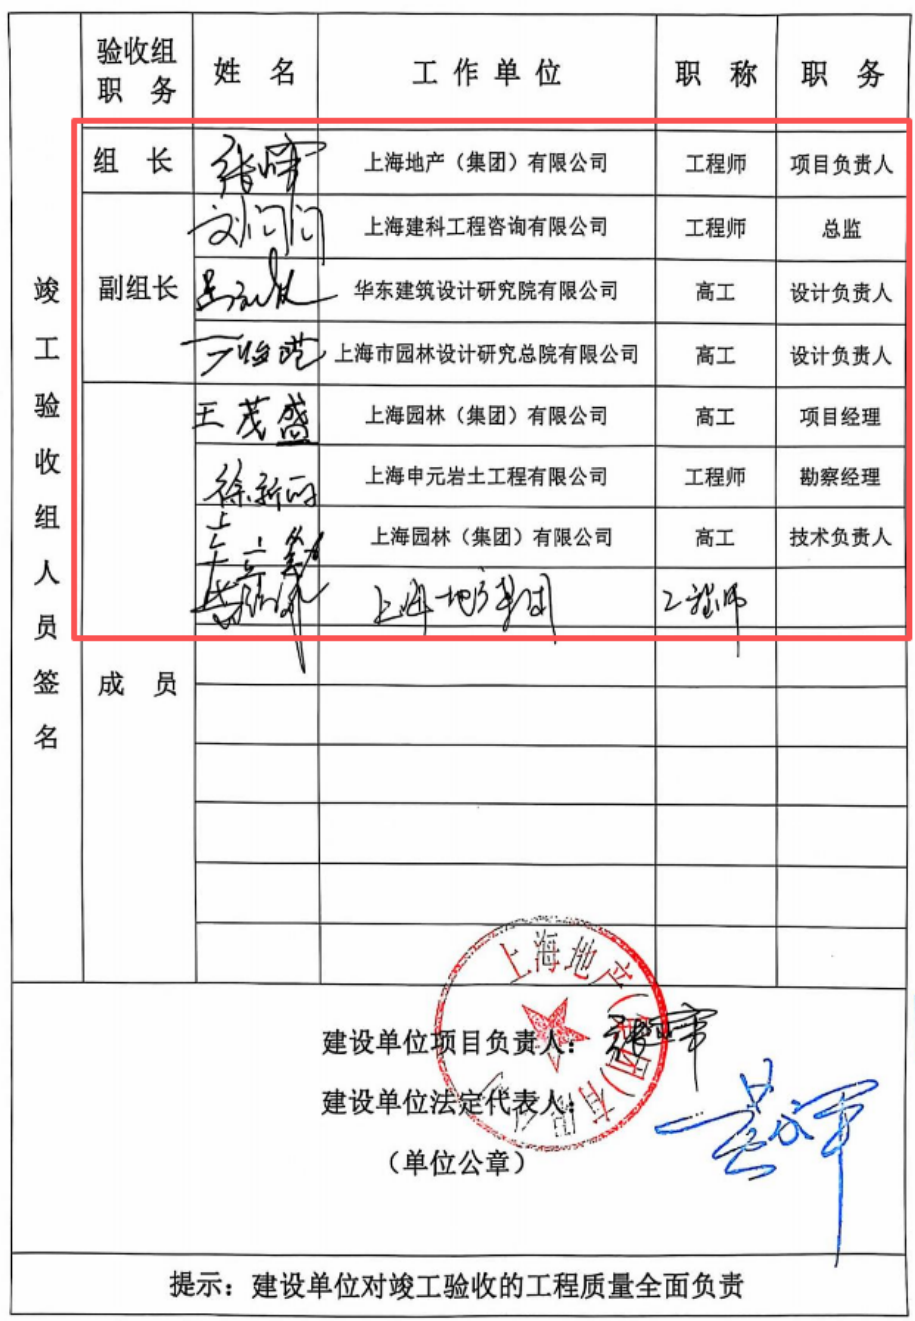 竣工验收组人员签名
验收组职务 姓名 工作单位 职称 职务
组长 上海地产（集团）有限公司 工程师 项目负责人
副组长 上海建科工程咨询有限公司 工程师 总监
华东建筑设计研究院有限公司 高工 设计负责人
上海市园林设计研究总院有限公司 高工 设计负责人
成员 王茂盛 上海园林（集团）有限公司 高工 项目经理
上海申元岩土工程有限公司 工程师 勘察经理
上海园林（集团）有限公司 高工 技术负责人
上海地产集团 工程师
上海地产（集团）有限公司
建设单位项目负责人：
建设单位法定代表人：
（单位公章）
提示：建设单位对竣工验收的工程质量全面负责